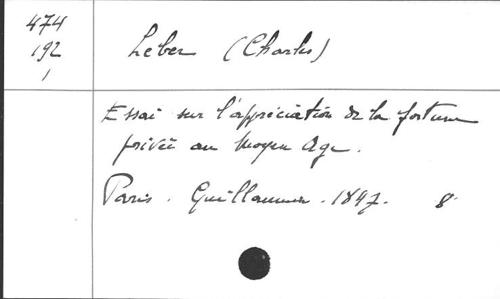 474
192
1
Leber (Charles)
Essai sur l'appréciation de la fortune
privée au Moyen Age.
Paris. Guillaumin. 1847. 8°